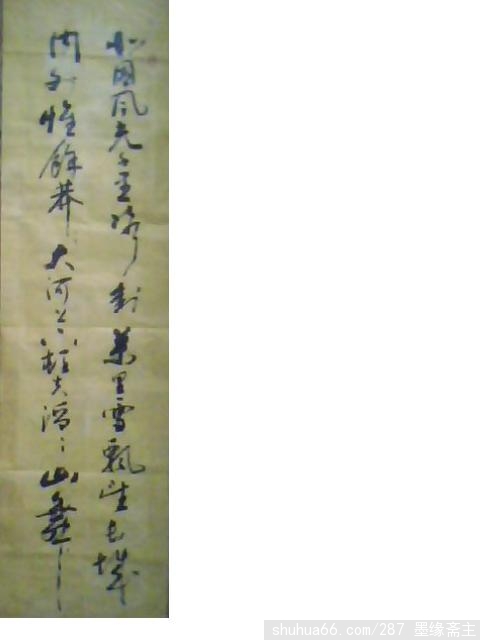 北国风光千里冰封萬里雪飘望长城
内外惟餘莽大河上下頓失滔〻山舞
shuhua66.com/287 墨缘斋主